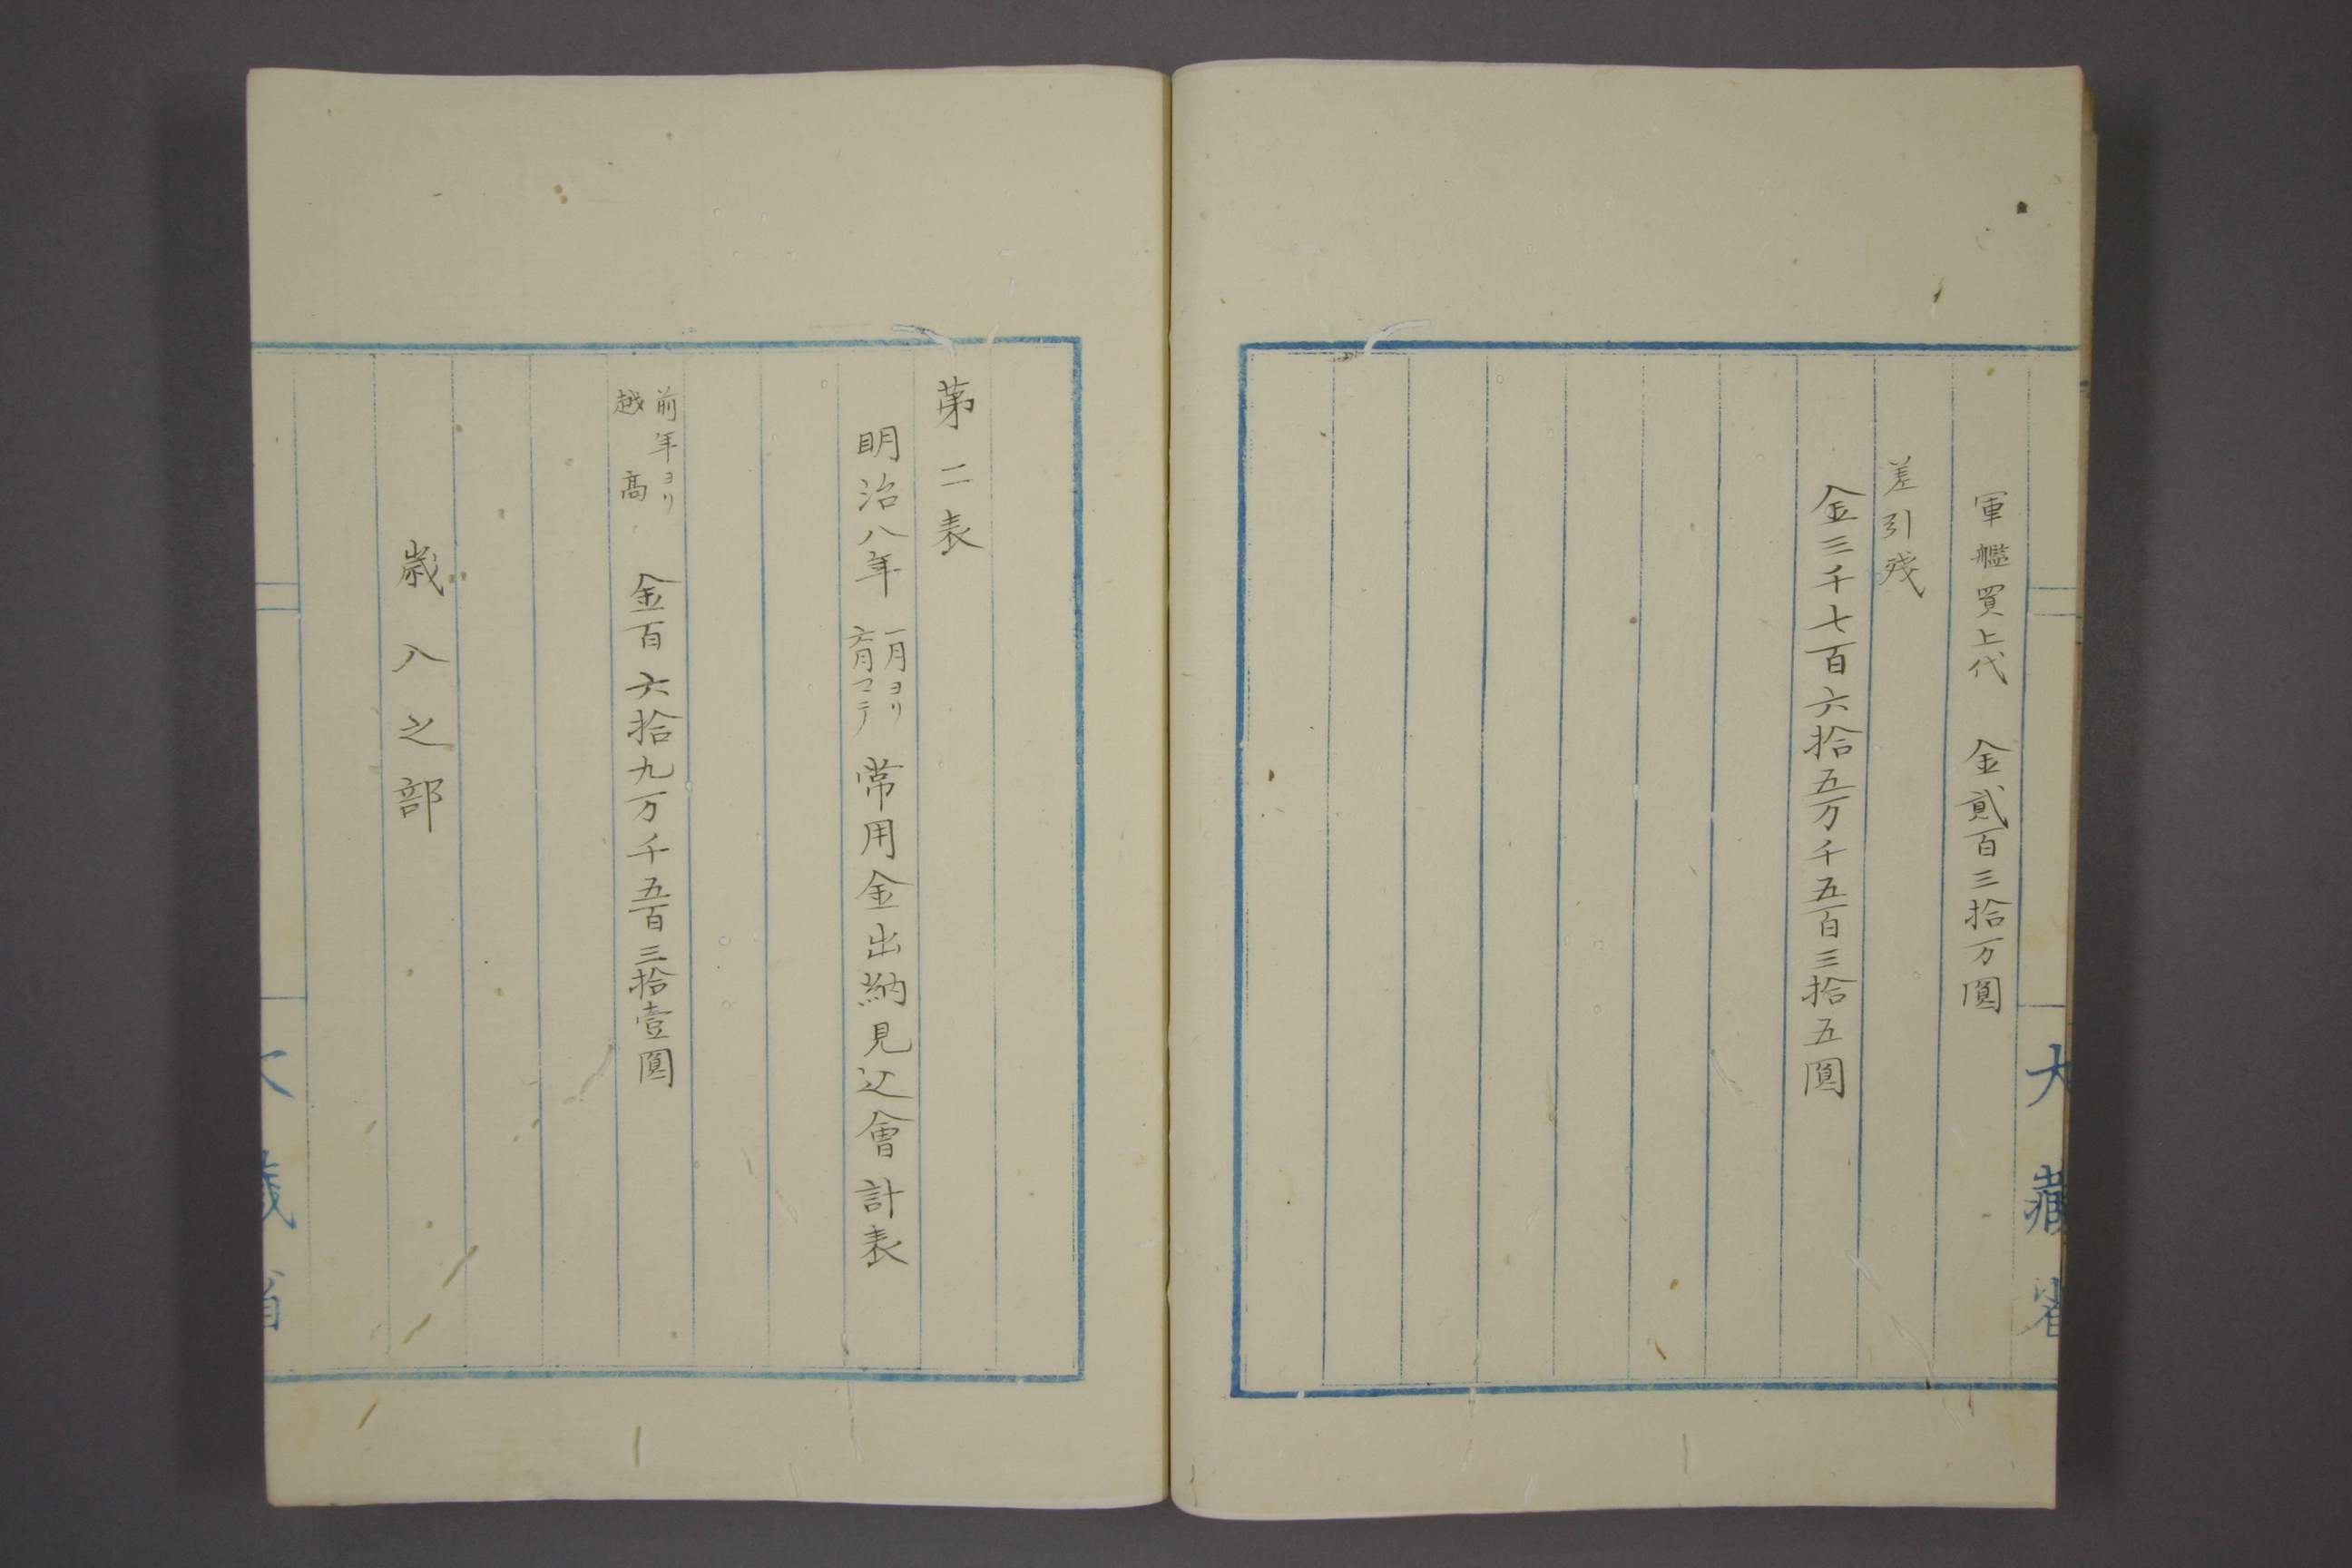 軍艦買上代　金貳百三拾万圓
差引殘
金三千七百六拾五万千五百三拾五圓
大藏省
第二表
明治八年一月ヨリ六月マテ常用金出納見込會計表
前年ヨリ越高　金百六拾九万千五百三拾壹圓
歳入之部
大藏省